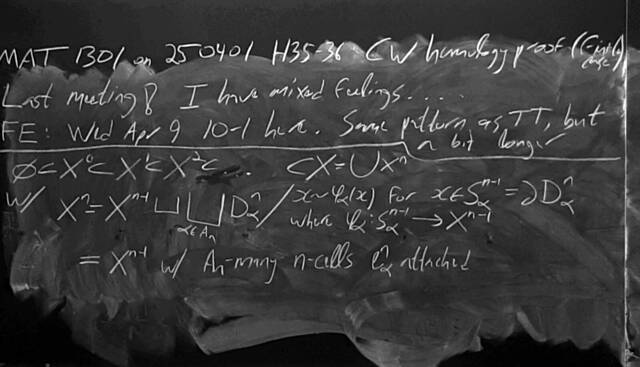 MAT 1301 on 250401 H35-36: CW homology proof (finite case)
Last meeting! I have mixed feelings....
FE: Wed Apr 9 10-1 here. Same pattern as TT, but a bit longer
∅ ⊂ X⁰ ⊂ X¹ ⊂ X² ⊂ ... ⊂ X = ∪Xⁿ
w/ Xⁿ = Xⁿ⁻¹ ⊔ ⨆_{α∈Aₙ} Dⁿ_α / x ~ φ_α(x) for x ∈ S_αⁿ⁻¹ = ∂Dⁿ_α
where φ_α: S_αⁿ⁻¹ → Xⁿ⁻¹
= Xⁿ⁻¹ w/ Aₙ-many n-cells eⁿ_α attached